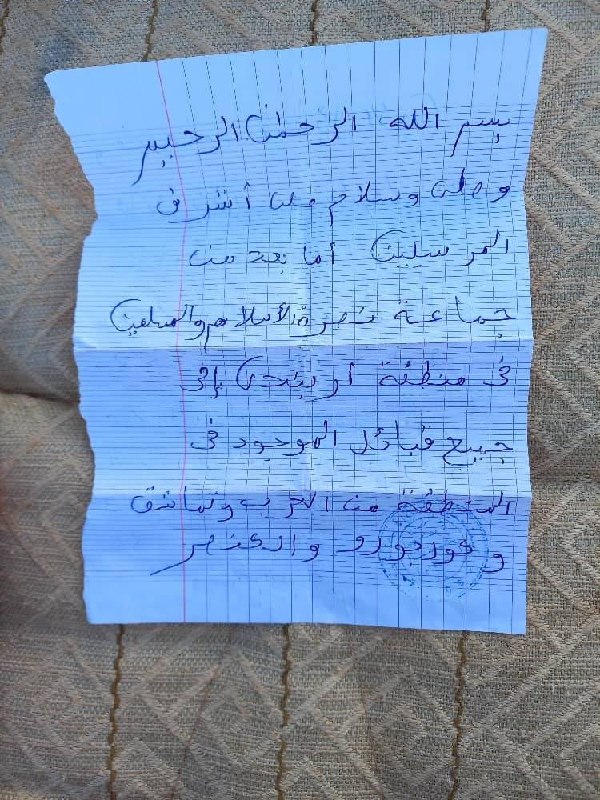 بسم الله الرحمان الرحيم
وصلى وسلام على أشرف
المرسلين أما بعد من
جماعة نصرة الأسلام والمسلمين
فى منطقة إلى
جميع قبائل الموجود فى
المنطقة من العرب وتماشق
و والكنصر